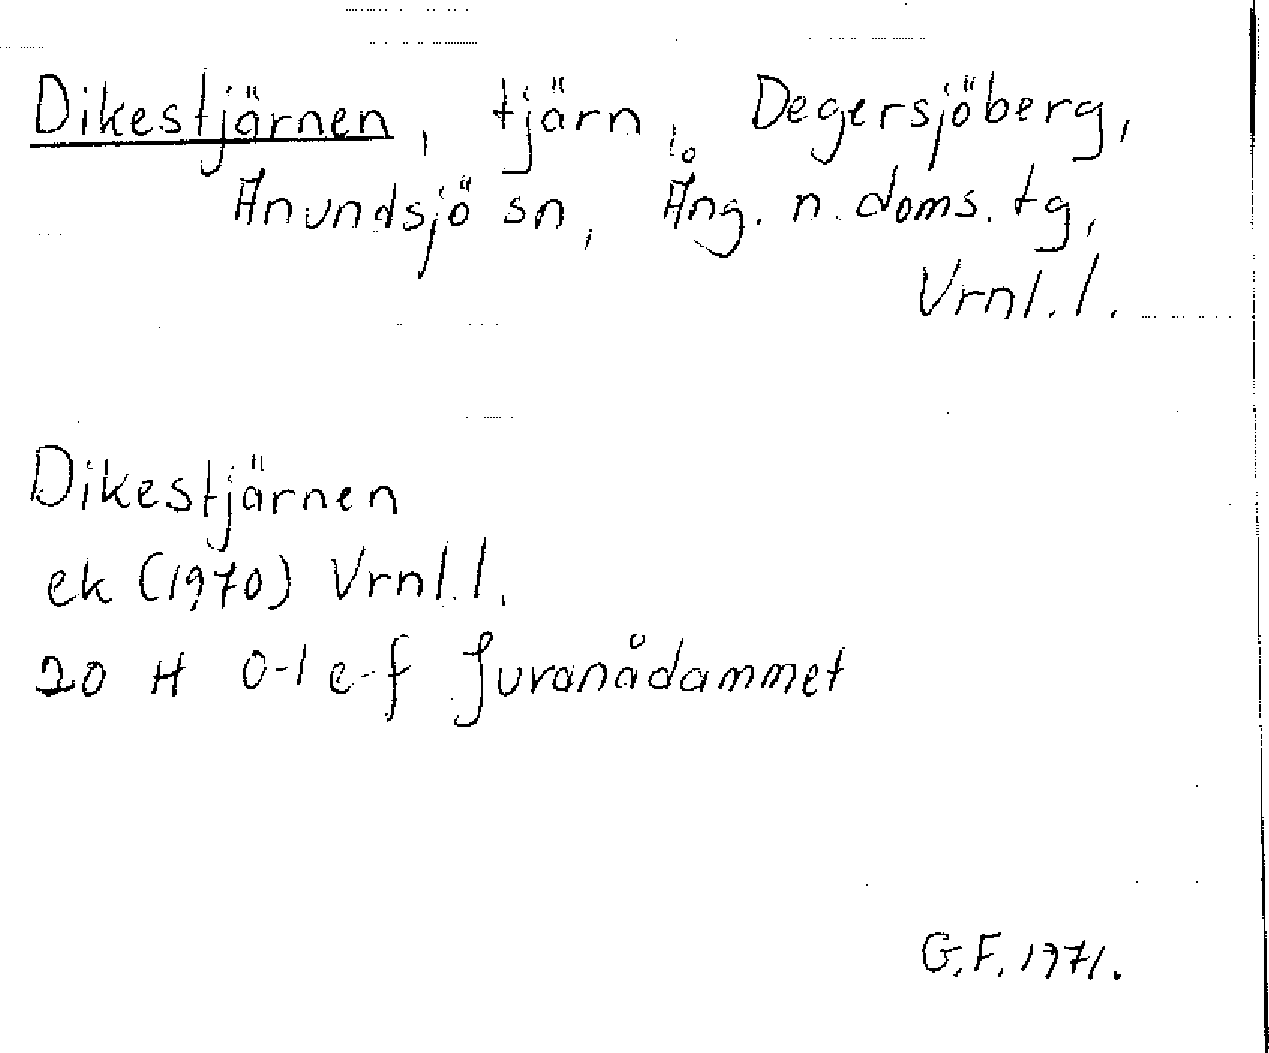 Dikestjärnen, tjärn, Degersjöberg,
Anundsjö sn, Ång. n. doms. tg,
Vrnl. l.
Dikestjärnen
ek (1970) Vrnl. l.
20 H 0-1 e-f Juvanådammet
G.F. 1971.